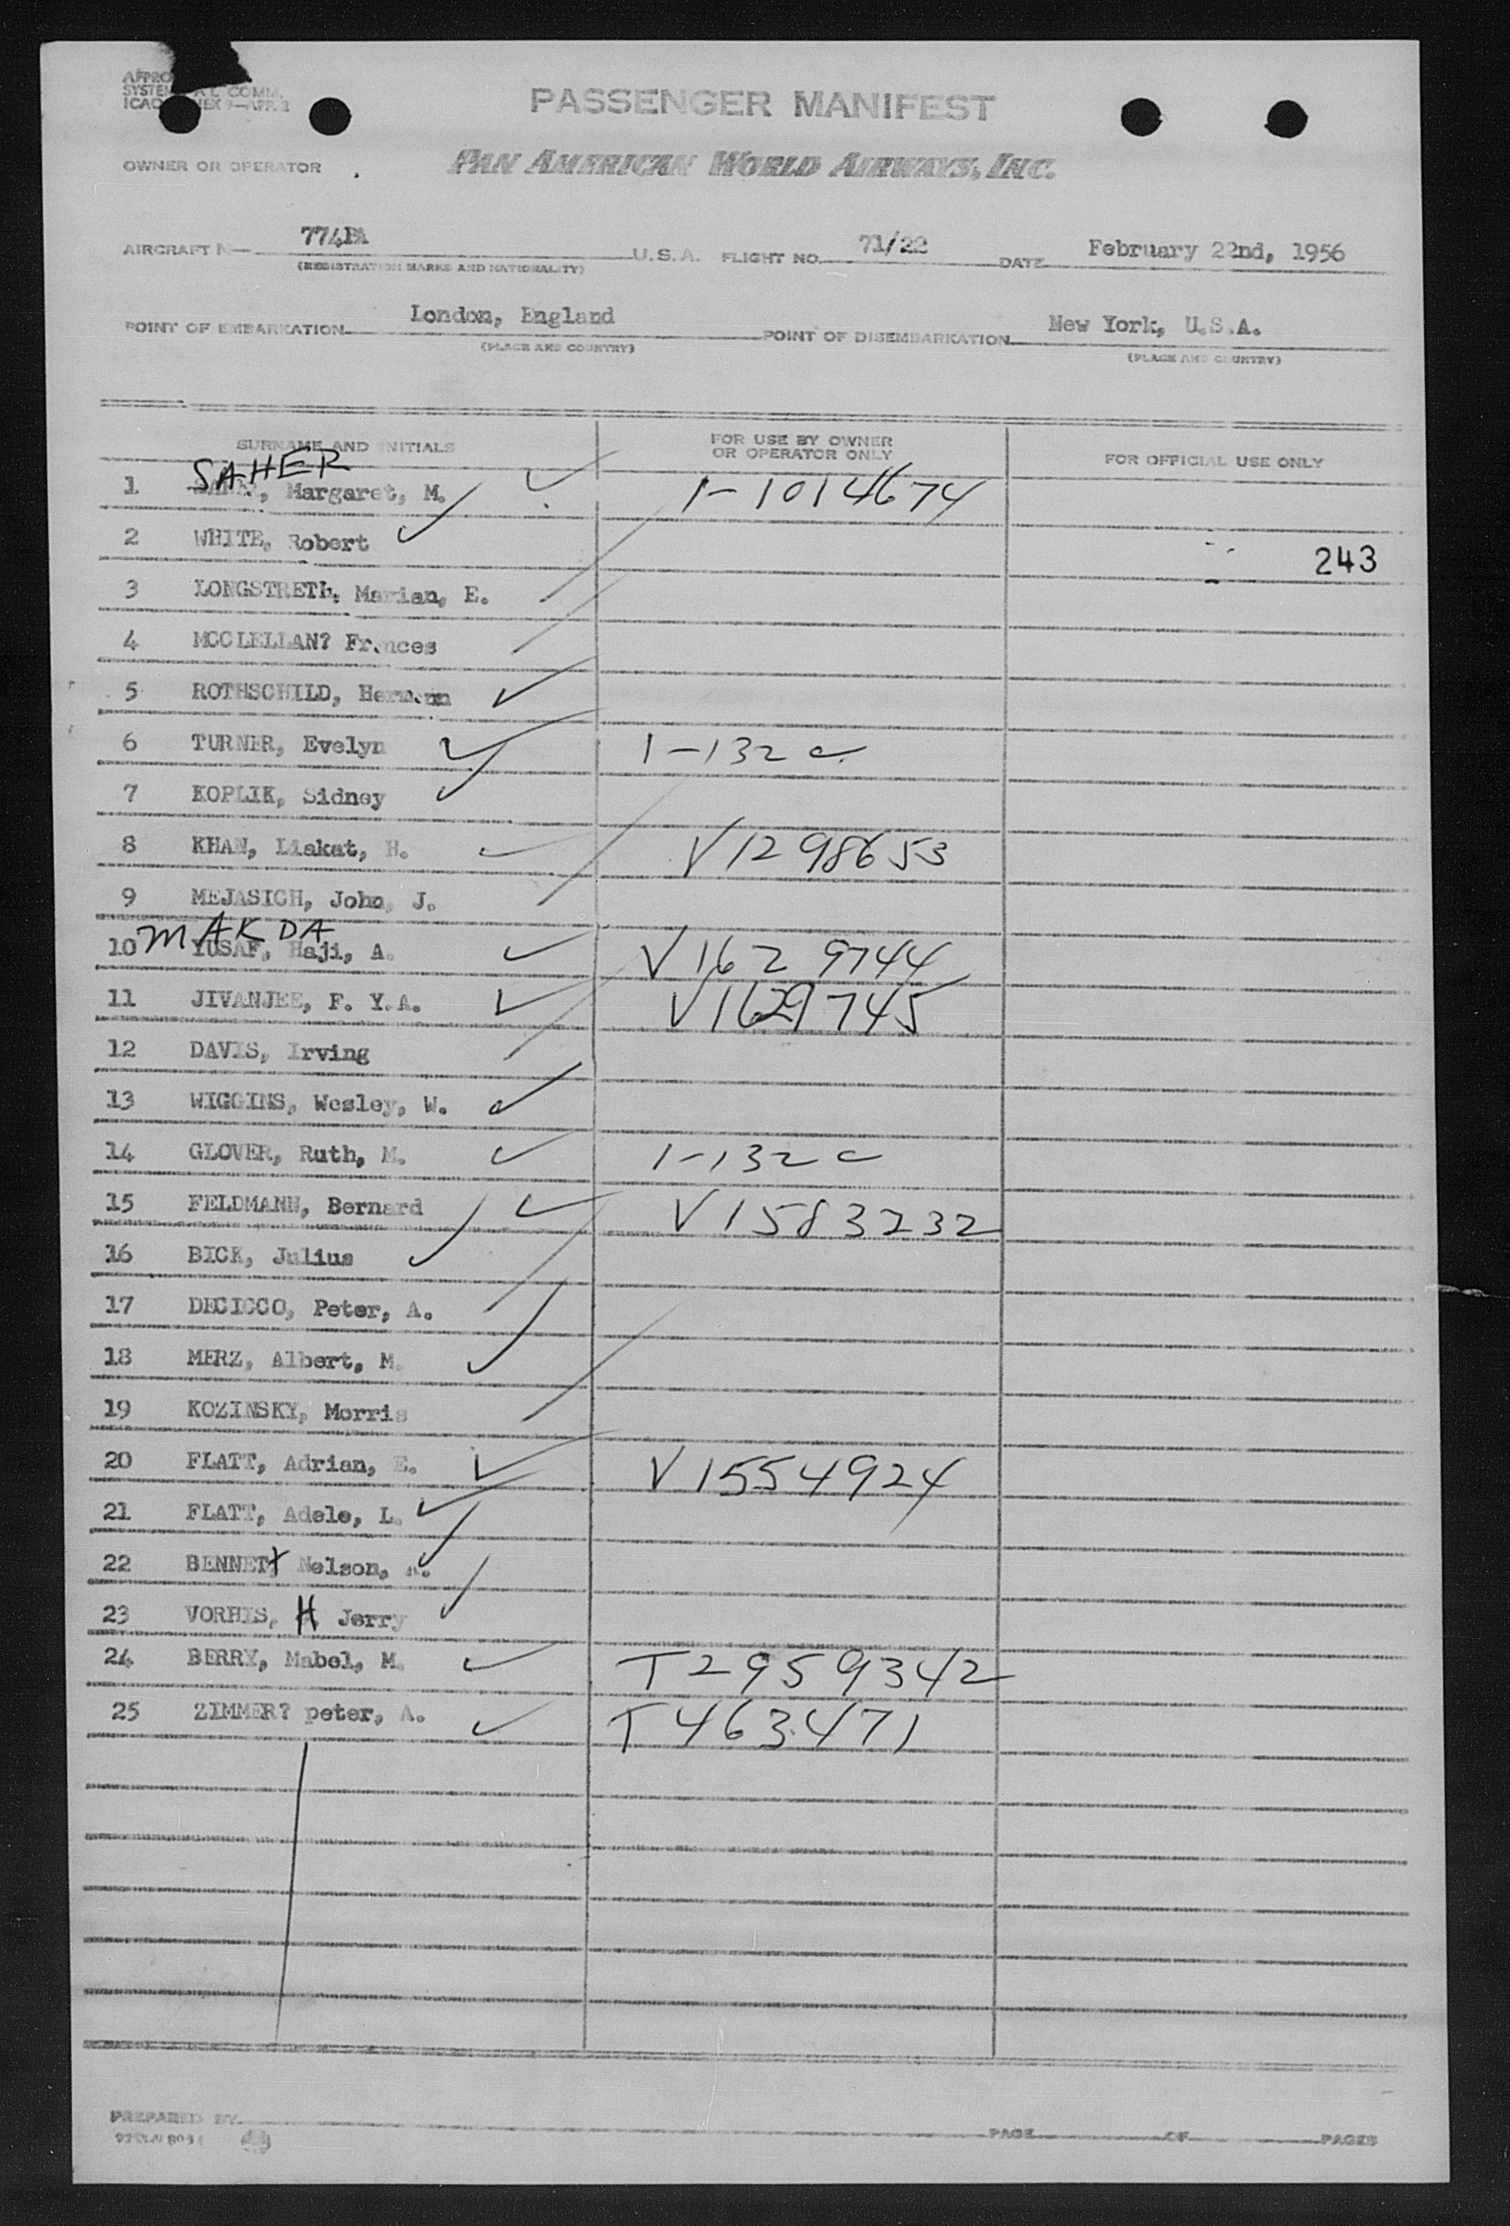 PASSENGER MANIFEST
OWNER OR OPERATOR PAN AMERICAN WORLD AIRWAYS, INC.
AIRCRAFT N— 774PA U.S.A. FLIGHT NO. 71/22 DATE February 22nd, 1956
(REGISTRATION MARKS AND NATIONALITY)
POINT OF EMBARKATION London, England POINT OF DISEMBARKATION New York, U.S.A.
(PLACE AND COUNTRY) (PLACE AND COUNTRY)
SURNAME AND INITIALS FOR USE BY OWNER OR OPERATOR ONLY FOR OFFICIAL USE ONLY
SAHER
1 Margaret, M. 1-1014674
2 WHITE, Robert 243
3 LONGSTRETh, Marian, E.
4 MCCLELLAN? Frances
5 ROTHSCHILD, Hermann
6 TURNER, Evelyn 1-132c
7 KOPLIK, Sidney
8 KHAN, Liakat, H. V1298653
9 MEJASICH, John, J.
MAKDA
10 YUSAF, Haji, A. V1629744
11 JIVANJEE, F. Y.A. V1629745
12 DAVIS, Irving
13 WIGGINS, Wesley, W.
14 GLOVER, Ruth, M. 1-132c
15 FELDMANN, Bernard V1583232
16 BICK, Julius
17 DECICCO, Peter, A.
18 MERZ, Albert, M.
19 KOZINSKY, Morris
20 FLATT, Adrian, E. V1554924
21 FLATT, Adele, L.
22 BENNETT Nelson,
23 VORHIS, H Jerry
24 BERRY, Mabel, M. T2959342
25 ZIMMER? peter, A. T463471
PREPARED BY
PAGE OF PAGES